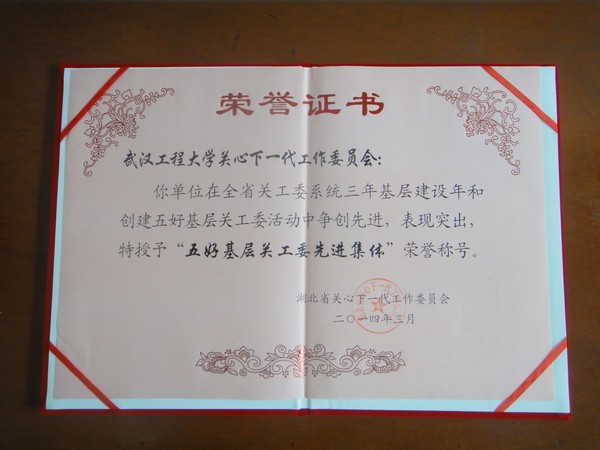 荣誉证书
武汉工程大学关心下一代工作委员会：
你单位在全省关工委系统三年基层建设年和
创建五好基层关工委活动中争创先进，表现突出，
特授予“五好基层关工委先进集体”荣誉称号。
湖北省关心下一代工作委员会
二〇一四年三月